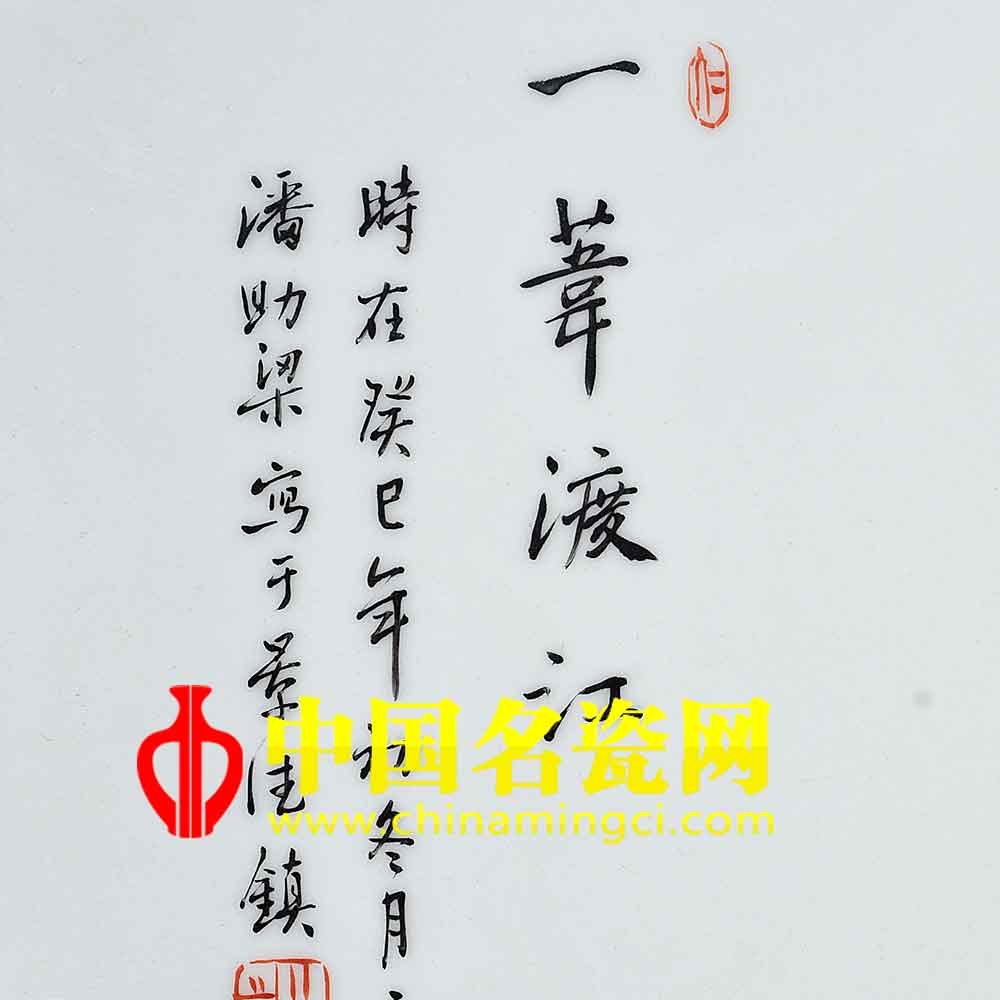 一葦渡江
時在癸巳年初冬月
潘助梁寫于景德鎮
中国名瓷网
www.chinamingci.com